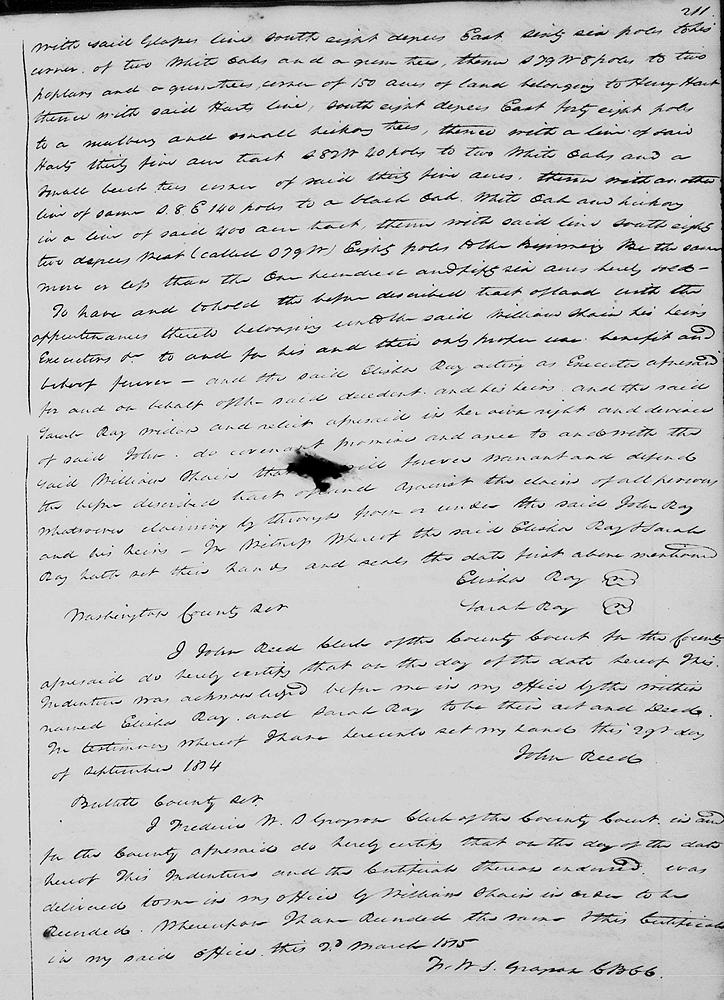 211
with said Glapes line South eight degrees East sixty six poles to his
corner of two White Oaks and a gum trees, thence S 79 W 8 poles to two
poplars and a gum trees, corner of 150 acres of land belonging to Henry Hart
thence with said Harts line, South eight degrees East forty eight poles
to a mulbery and small hickory trees, thence with a line of said
Harts thirty five acre tract S 82 W 40 poles to two White Oaks and a
small beech trees corner of said thirty five acres, thence with another
line of same S. 8 E 140 poles to a black Oak, White Oak and hickory
in a line of said 400 acre tract, thence with said line South eighty
two degrees West (called S 79 W) Eighty poles to the Beginning Be the same
more or less than the One hundred and fifty six acres hereby sold –
To have and to hold the before described tract of land with the
appurtenances thereto belonging unto the said William Shain his heirs
Executors &c to and for his and their only proper use benefit and
behoof forever – and the said Elisha Ray acting as Executor aforesaid
for and on behalf of the said decedent and his heirs and the said
Sarah Ray widow and relict aforesaid in her own right and devisee
of said John do covenant promise and agree to and with the
said William Shain that will forever warrant and defend
the before described tract of land against the claim of all persons
whatsoever claiming by through from or under the said John Ray
and his heirs – In Witness Whereof the said Elisha Ray & Sarah
Ray hath set their hands and seals the date first above mentioned
Elisha Ray
Sarah Ray
Washington County Sct
I John Reed Clerk of the County Court for the County
aforesaid do hereby certify that on the day of the date hereof This
Indenture was acknowledged before me in my office by the within
named Elisha Ray and Sarah Ray to be their act and Deed.
In testimony whereof I have hereunto set my hand this 29t day
of September 1814
John Reed
Bullitt County Sct.
I Frederic W. S Grayson Clerk of the County Court in and
for the County aforesaid do hereby certify that on the day of the date
hereof This Indenture and the Certificate thereon endorsed was
delivered to me in my office by William Shain in order to be
Recorded. Whereupon I have Recorded the same & this Certificate
in my said office this 2d March 1815
Fr. W S. Grayson CBCC.